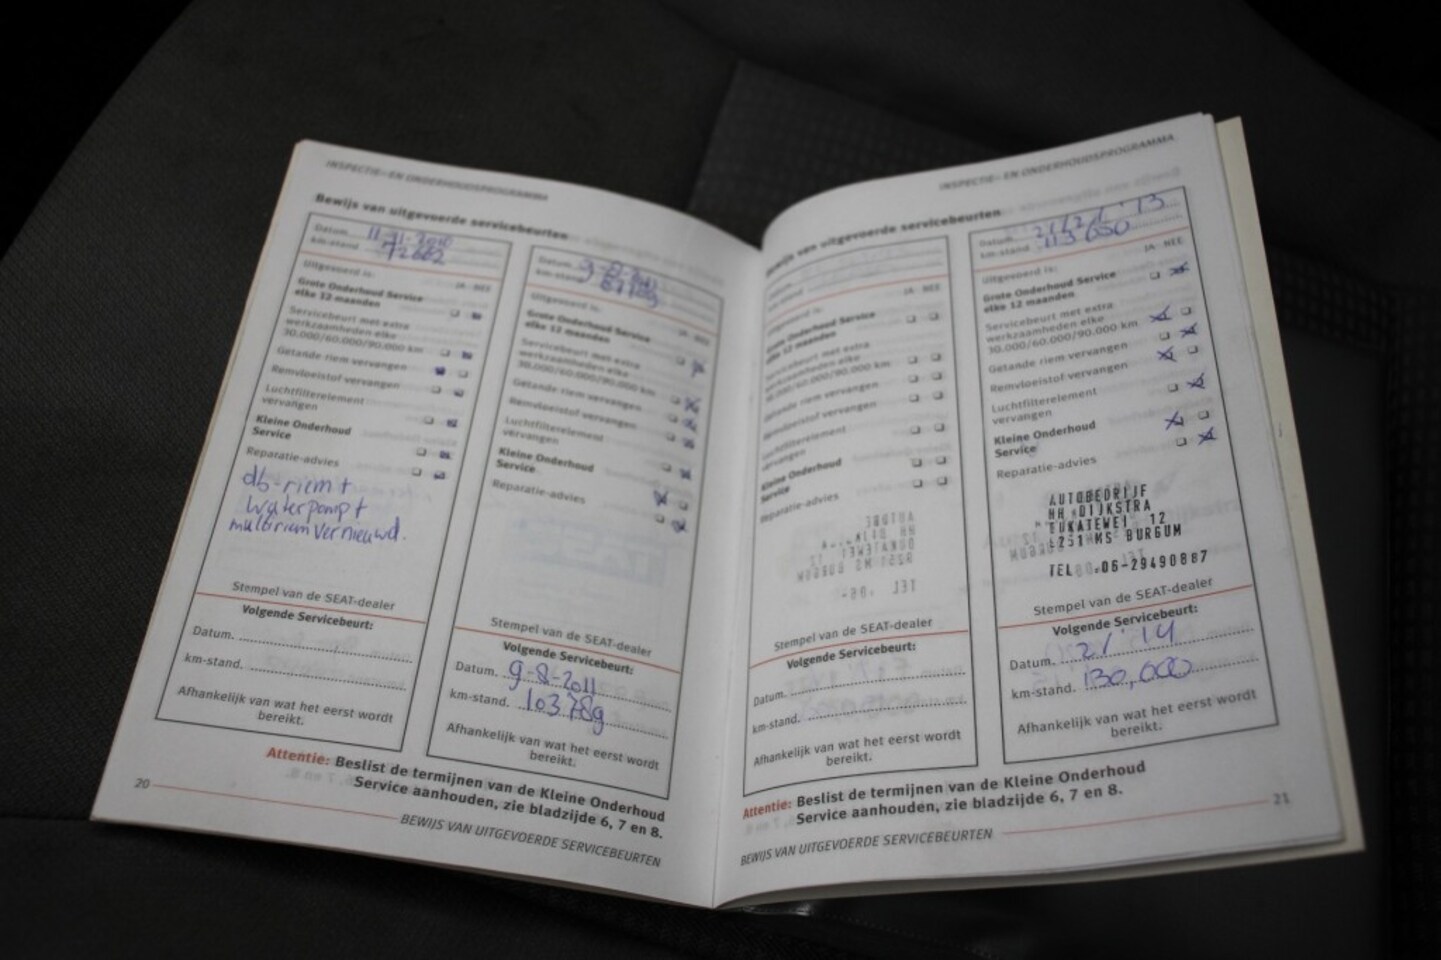 INSPECTIE- EN ONDERHOUDSPROGRAMMA
Bewijs van uitgevoerde servicebeurten
Datum.
km-stand 72662
Uitgevoerd is:
JA NEE
Grote Onderhoud Service
elke 12 maanden
Servicebeurt met extra
werkzaamheden elke
30.000/60.000/90.000 km
Getande riem vervangen
Remvloeistof vervangen
Luchtfilterelement
vervangen
Kleine Onderhoud
Service
Reparatie-advies
db-riem +
Waterpomp +
multiriem vernieuwd.
Stempel van de SEAT-dealer
Volgende Servicebeurt:
Datum.
km-stand.
Afhankelijk van wat het eerst wordt
bereikt.
Datum.
km-stand
Uitgevoerd is:
JA NEE
Grote Onderhoud Service
elke 12 maanden
Servicebeurt met extra
werkzaamheden elke
30.000/60.000/90.000 km
Getande riem vervangen
Remvloeistof vervangen
Luchtfilterelement
vervangen
Kleine Onderhoud
Service
Reparatie-advies
Stempel van de SEAT-dealer
Volgende Servicebeurt:
Datum. 9-8-2011
km-stand. 103789
Afhankelijk van wat het eerst wordt
bereikt.
Attentie: Beslist de termijnen van de Kleine Onderhoud
Service aanhouden, zie bladzijde 6, 7 en 8.
20
BEWIJS VAN UITGEVOERDE SERVICEBEURTEN
INSPECTIE- EN ONDERHOUDSPROGRAMMA
Bewijs van uitgevoerde servicebeurten
Datum.
km-stand
Uitgevoerd is:
JA NEE
Grote Onderhoud Service
elke 12 maanden
Servicebeurt met extra
werkzaamheden elke
30.000/60.000/90.000 km
Getande riem vervangen
Remvloeistof vervangen
Luchtfilterelement
vervangen
Kleine Onderhoud
Service
Reparatie-advies
Stempel van de SEAT-dealer
Volgende Servicebeurt:
Datum.
km-stand.
Afhankelijk van wat het eerst wordt
bereikt.
Datum.
km-stand 113 650
Uitgevoerd is:
JA NEE
Grote Onderhoud Service
elke 12 maanden
Servicebeurt met extra
werkzaamheden elke
30.000/60.000/90.000 km
Getande riem vervangen
Remvloeistof vervangen
Luchtfilterelement
vervangen
Kleine Onderhoud
Service
Reparatie-advies
AUTOBEDRIJF
HH DIJKSTRA
12
9251 MS BURGUM
TEL. 06-29490887
Stempel van de SEAT-dealer
Volgende Servicebeurt:
Datum. 2/'14
km-stand. 130,000
Afhankelijk van wat het eerst wordt
bereikt.
Attentie: Beslist de termijnen van de Kleine Onderhoud
Service aanhouden, zie bladzijde 6, 7 en 8.
21
BEWIJS VAN UITGEVOERDE SERVICEBEURTEN